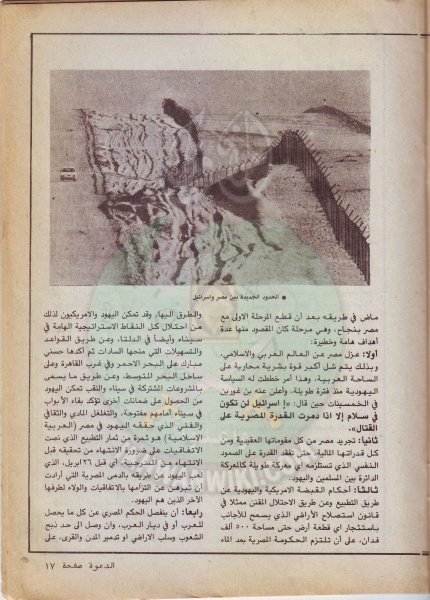 ● الحدود الجديدة بين مصر واسرائيل
ماض في طريقه بعد أن قطع المرحلة الاولى مع
مصر بنجاح، وهي مرحلة كان المقصود منها عدة
أهداف هامة وخطيرة:
أولا: عزل مصر عن العالم العربي والاسلامي،
وبذلك يتم شل أكبر قوة بشرية محاربة على
الساحة العربية، وهذا أمر خططت له السياسة
اليهودية منذ فترة طويلة، وأعلن عنه بن غوريين
في الخمسينات حين قال: «إ اسرائيل لن تكون
في سلام إلا اذا دمرت القدرة المصرية على
القتال».
ثانيا: تجريد مصر من كل مقوماتها العقيدية ومن
كل قدراتها المالية، حتى تفقد القدرة على الصمود
النفسي الذي تستلزمه أي معركة طويلة كالمعركة
الدائرة بين المسلمين واليهود.
ثالثا: أحكام القبضة الامريكية واليهودية عن
طريق التطبيع وعن طريق الاحتلال المقنن ممثلا في
قانون استصلاح الأراضي الذي يسمح للأجانب
باستئجار اي قطعة أرض حتى مساحة ٥٠٠ ألف
فدان، على أن تلتزم الحكومة المصرية بمد الماء
والطرق اليها، وقد تمكن اليهود والامريكيون لذلك
من احتلال كل النقاط الاستراتيجية الهامة في
سيناء وأيضا في الدلتا، وعن طريق القواعد
والتسهيلات التي منحها السادات ثم أكدها حسني
مبارك على البحر الاحمر وفي غرب القاهرة وعلى
ساحل البحر المتوسط، وعن طريق ما يسمى
بالمشروعات المشتركة في سيناء والنقب تمكن اليهود
من الحصول على ضمانات أخرى تؤكد بقاء الأبواب
في سيناء أمامهم مفتوحة، والتغلغل المادي والثقافي
والفني الذي حققه اليهود في مصر (العربية
الاسلامية) هو ثمرة من ثمار التطبيع الذي نصت
الاتفاقيات على ضرورة الانتهاء من تحقيقه قبل
الانتهاء من المسرحية، أي قبل ٢٦ ابريل، الذي
لعب اليهود عن طريقه بالدمى المصرية التي أرادت
أن تبرهن عن التزامها بالاتفاقيات والولاء لطرفها
الآخر الذين هم اليهود.
رابعا: أن ينفصل الحكم المصري عن كل ما يحصل
للعرب أو في ديار العرب، وان وصل الى حد ذبح
الشعوب وسلب الاراضي او تدمير المدن والقرى، على
الدعوة صفحة ١٧